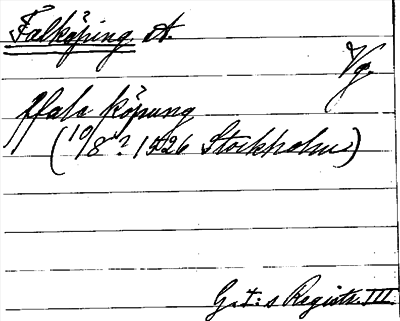 Falköping. A.
Vg.
ffala köpung
(10/8? 1526 Stockholm)
G. I:s Registr. III.